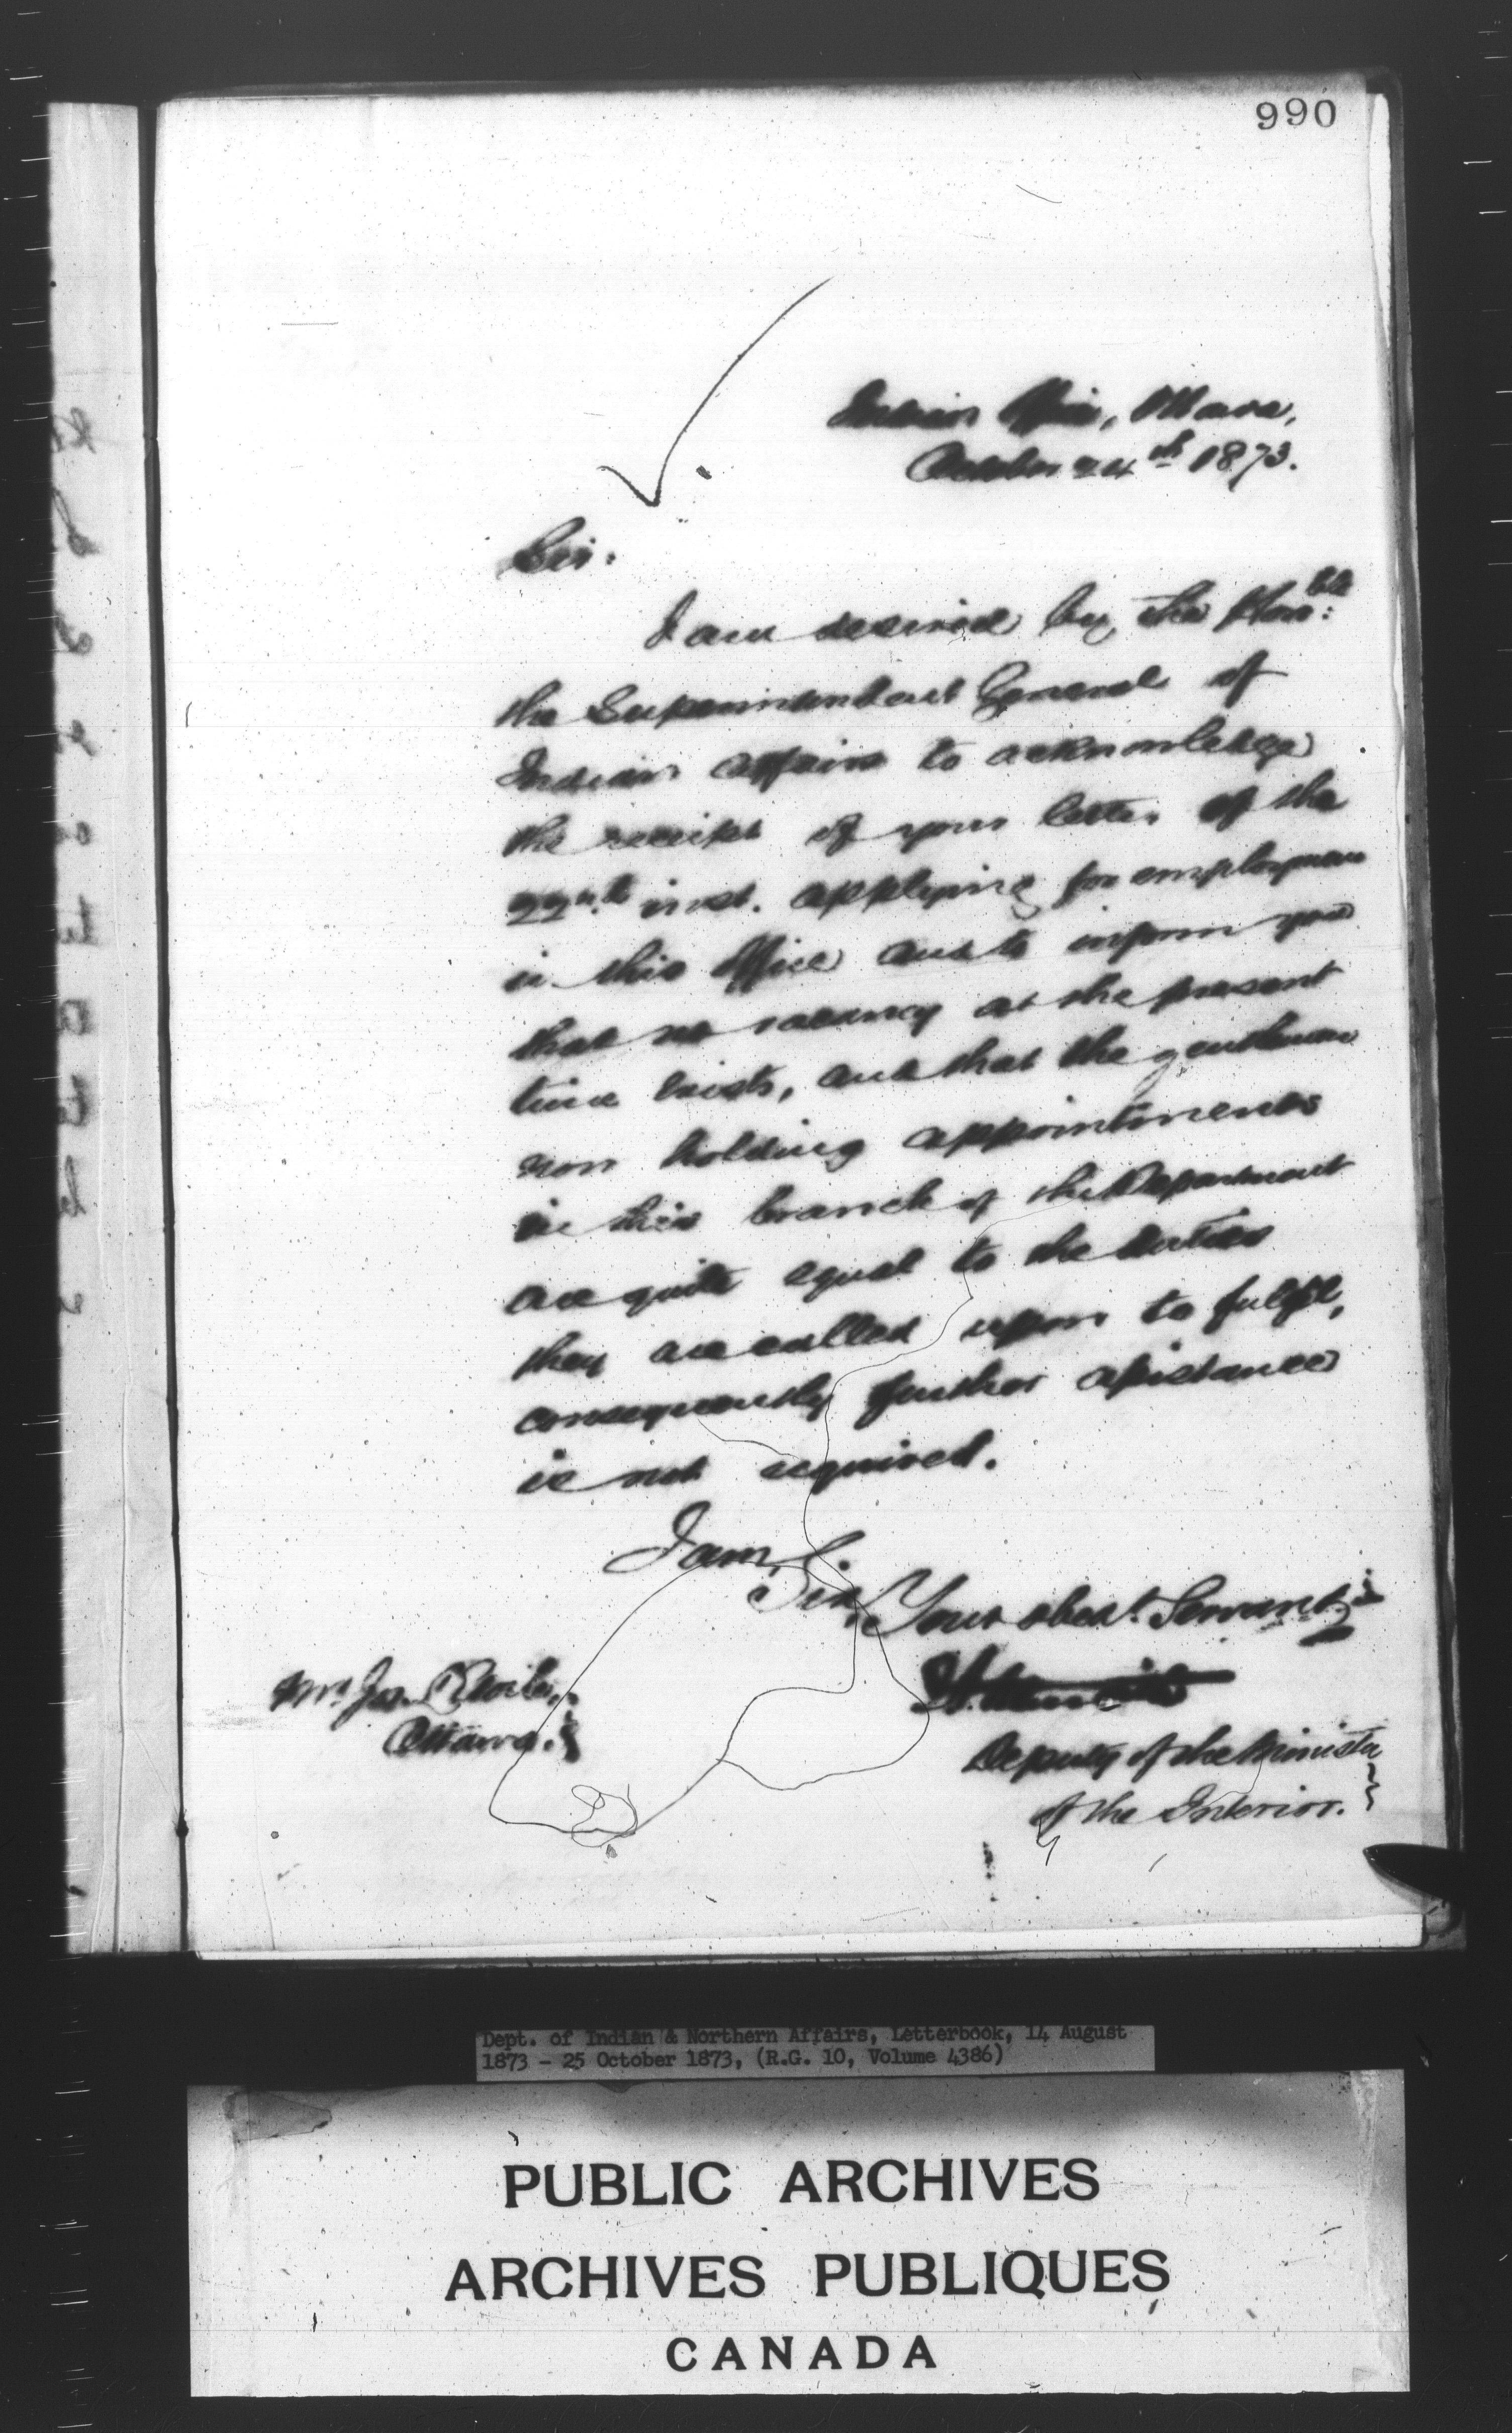 990
Indian Office, Ottawa,
October 24th 1873.
Sir.
I am desired by the Honble:
the Superintendent General of
Indian Affairs to acknowledge
the receipt of your letter of the
22nd inst. applying for employment
in this Office and to inform you
that no vacancy at the present
time exists, and that the gentlemen
now holding appointments
in this branch of the Department
are quite equal to the duties
they are called upon to fulfil,
consequently further assistance
is not required.
I am,
Sir,
Your obedt. Servant
Mr. Jas.
Ottawa.
Deputy of the Minister
of the Interior.
Dept. of Indian & Northern Affairs, Letterbook, 14 August
1873 - 25 October 1873, (R.G. 10, Volume 4386)
PUBLIC ARCHIVES
ARCHIVES PUBLIQUES
CANADA